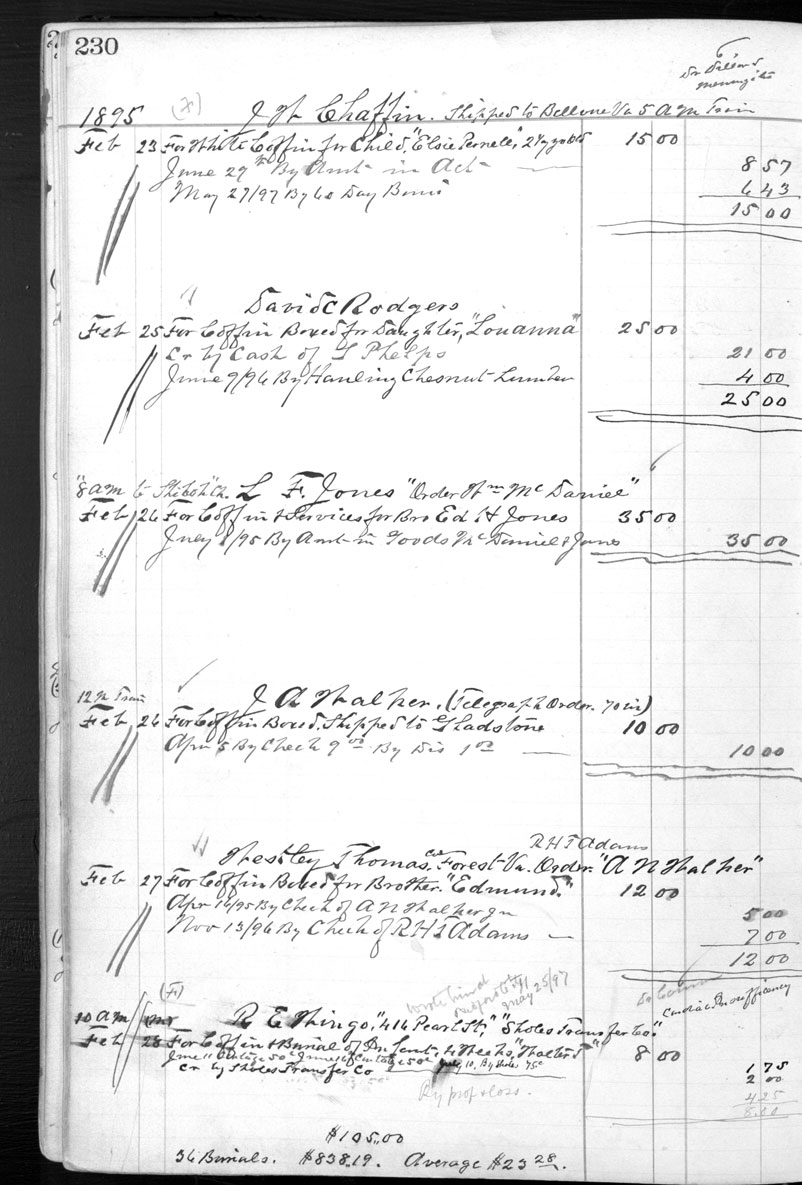 230
Dr Dillard
meningitis
1895 (X) J W Chaffin. Shipped to Bellevue Va 5 A m Train
Feb 23 For White Coffin for Child, "Elsie Pernell," 2 15 00
June 29 By Amt in Act — 8 57
May 27/97 By 60 Day Bonus 6 43
15 00
David C Rodgers
Feb 25 For Coffin Boxed for Daughter, "Louanna" 25 00
Cr by Cash of L Phelps 21 00
June 9/96 By Hauling Chesnut Lumber 4 00
25 00
"8 am to L F. Jones "Order Wm Mc Daniel"
Feb 26 For Coffin & Services for Bro Ed H Jones 35 00
/95 By Amt in Goods Mc Daniel & Jones 35 00
12 Train J A Walker. (Telegraph Order. 70 in)
Feb 26 For Coffin Boxed. Shipped to Gladstone 10 00
Apr 5 By Check 9 00 By Dis 1 00 — 10 00
R H T Adams
Westley Thomas, Forest Va. Order. "A N Walker"
Feb 27 For Coffin Boxed for Brother. "Edmund." 12 00
Apr 16/95 By Check of A N Walker 5 00
Nov 13/96 By Check of R H T Adams — 7 00
12 00
25/97
may
Cardiac Insufficiency
10 am R E Mingo, "416 Pearl St", "Sholes Transfer Co".
Feb 28 For Coffin & Burial of Infant, 4 Weeks, "Walter" 8 00
June 11 Cartage 50c June 16 Cartage 50c July 10, By Sholes 75c 1 75
Cr by Sholes Transfer Co 2 00
4 25
8.00
By prof & loss.
$105.00
36 Burials. $838.19. Average $23 28.